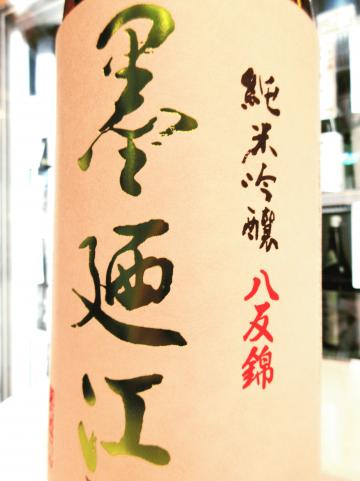 純米吟醸 八反錦
墨廼江